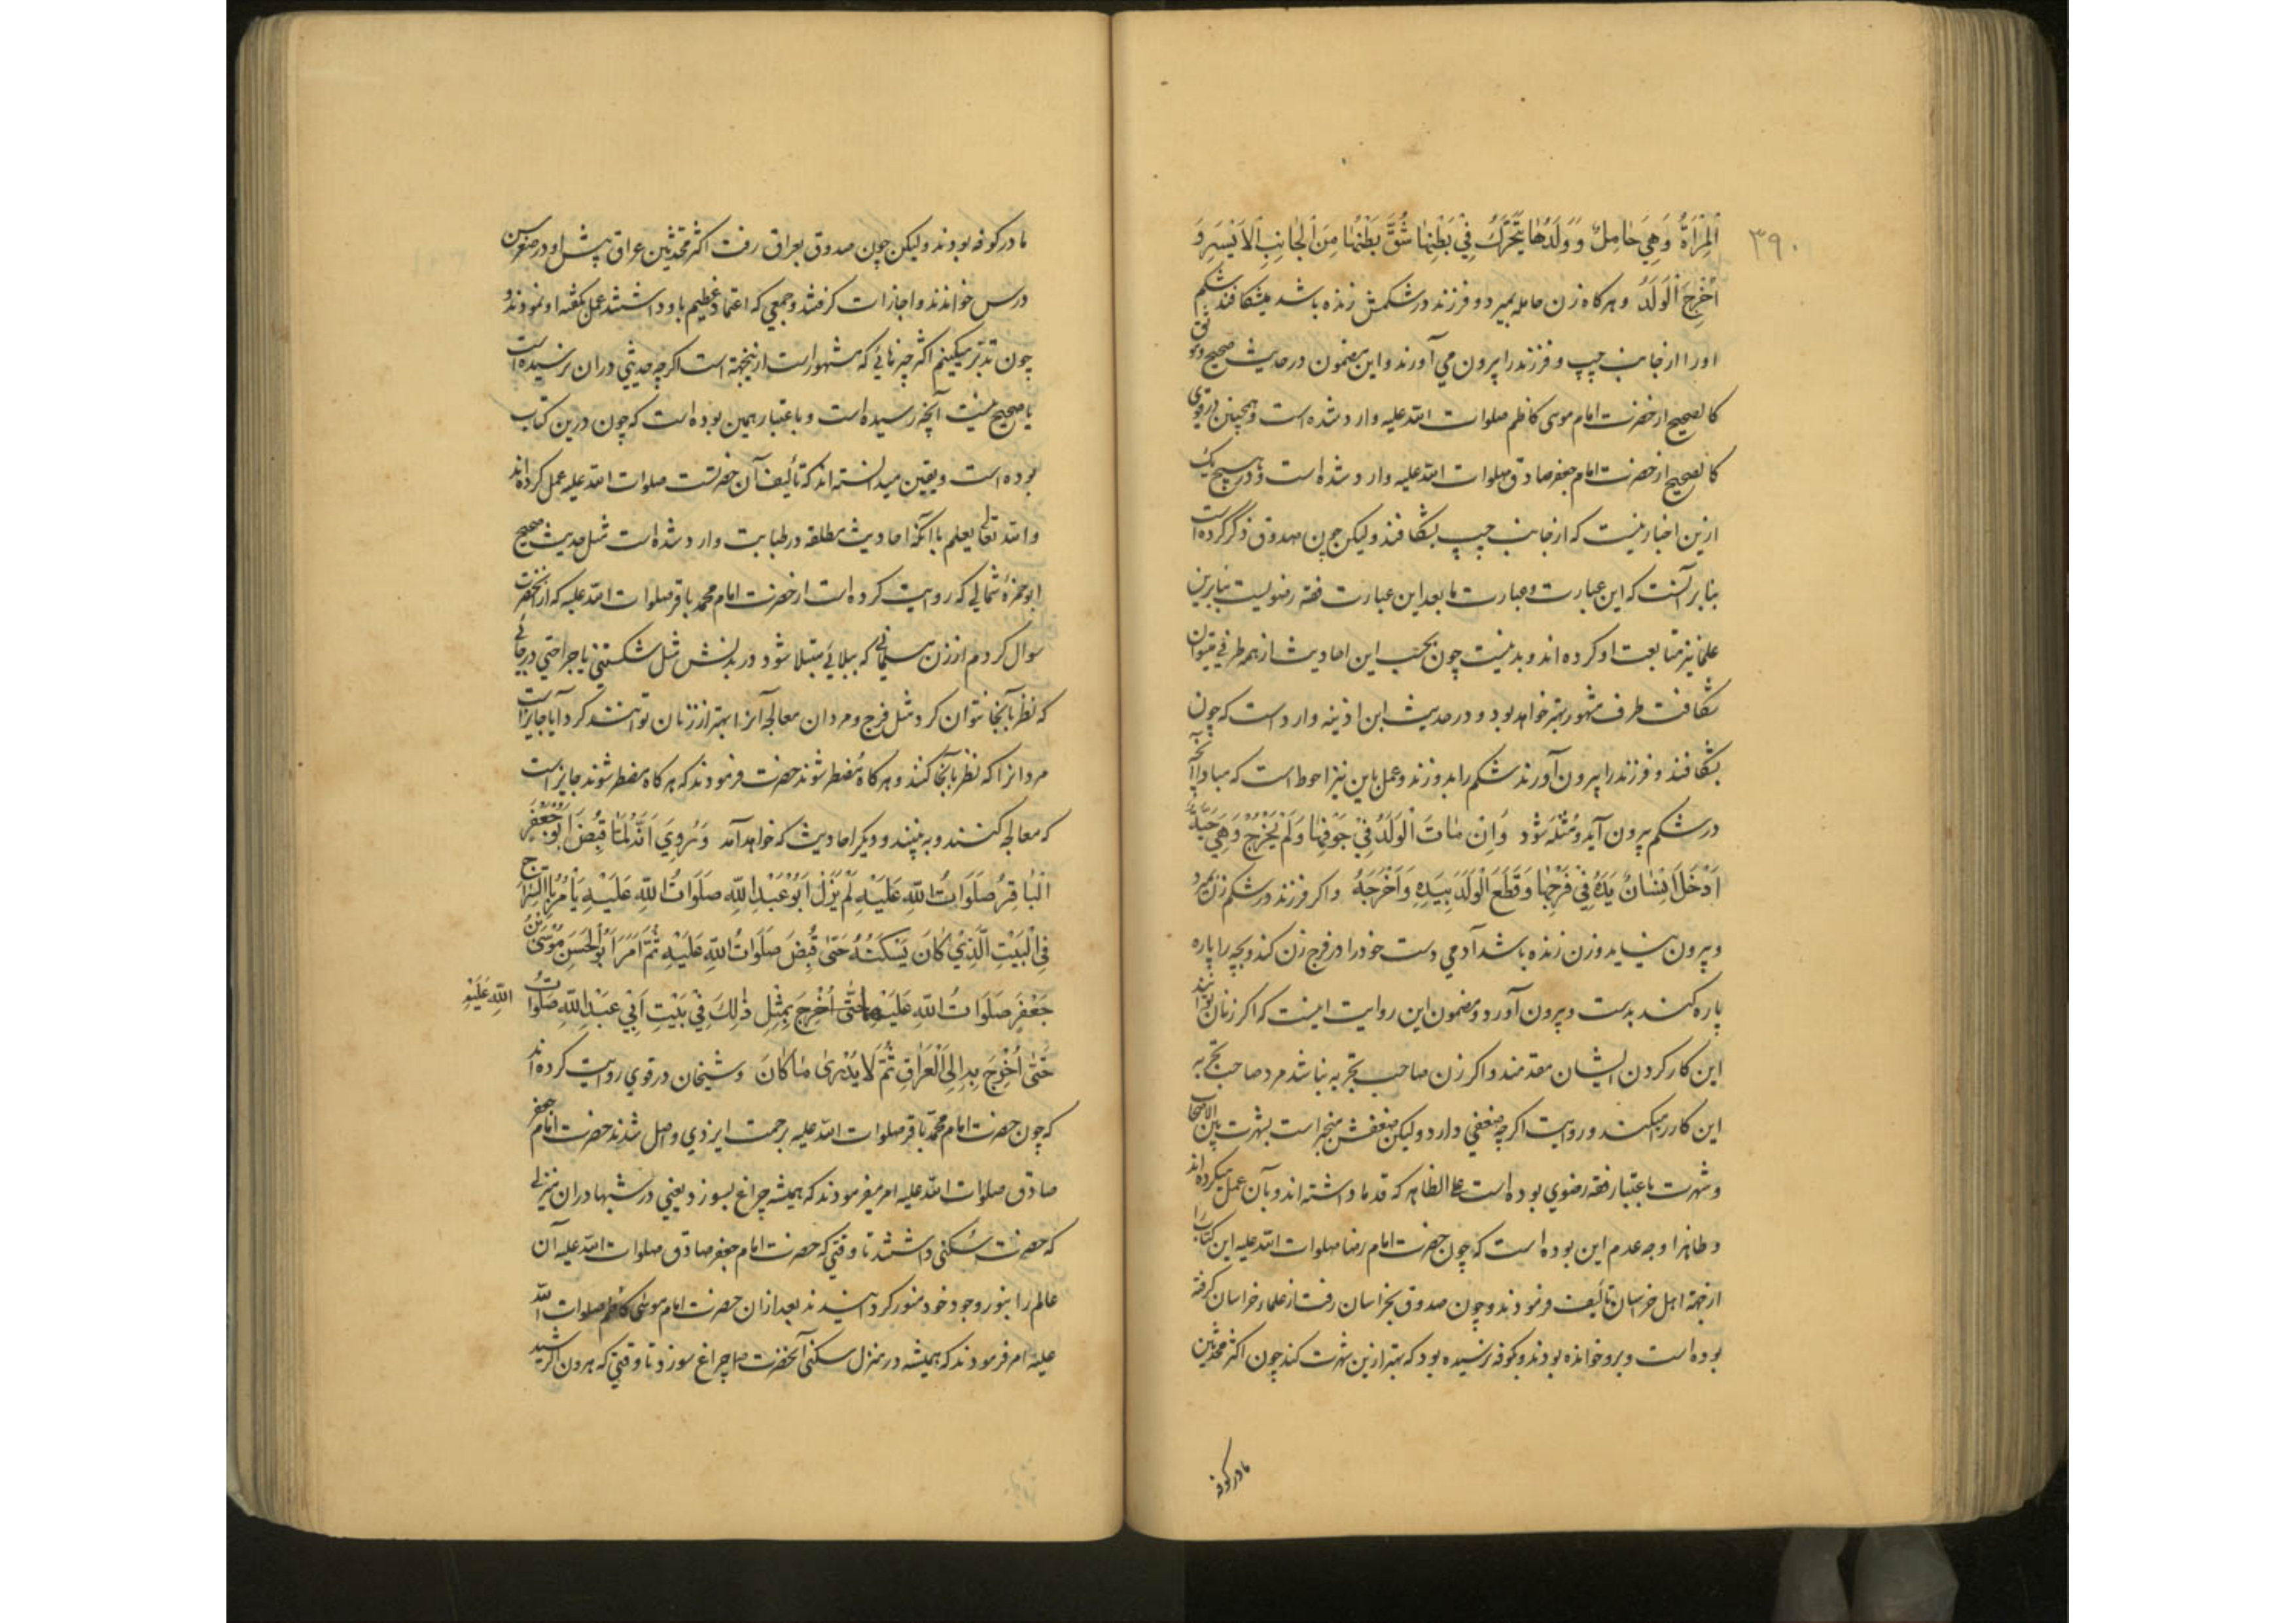 ۳۹۰
الْمَرْأَةُ وَهِيَ حَامِلٌ وَوَلَدُهَا يَتَحَرَّكُ فِي بَطْنِهَا شُقَّ بَطْنُهَا مِنَ الْجَانِبِ الْأَيْسَرِ وَ
أُخْرِجَ الْوَلَدُ و هرکاه زن حامله بمیرد و فرزند در شکمش زنده باشد میشکافند شکم
او را از جانب چپ و فرزند را بیرون می آورند و این مضمون در حدیث صحیح و موثق
کالصحیح از حضرت امام موسی کاظم صلوات الله علیه وارد شده است و همچنین در قوی
کالصحیح از حضرت امام جعفر صادق صلوات الله علیه وارد شده است و در هیچ یک
ازین اخبار نیست که از جانب چپ بشکافند و لیکن چون صدوق ذکر کرده است
بنا بر آنست که این عبارت و عبارت ما بعد این عبارت فقه رضویست بنابرین
علما نیز متابعت او کرده اند و بد نیست چون بحسب این احادیث از همه طرف میتوان
شکافت طرف مشهور بهتر خواهد بود و در حدیث ابن اذینه وارد است که چون
بشکافند و فرزند را بیرون آورند شکم را بدوزند و عمل باین نیز احوط است که مبادا آنچه
در شکم بیرون آید و مثله شود وَاِنْ مَاتَ الْوَلَدُ فِي جَوْفِهَا وَلَمْ يَخْرُجْ وَهِيَ حَيَّةٌ
اَدْخَلَ اِنْسَانٌ يَدَهُ فِي فَرْجِهَا وَقَطَعَ الْوَلَدَ بِيَدِهِ وَاَخْرَجَهُ و اکر فرزند در شکم زن بمیرد
و بیرون نیاید و زن زنده باشد آدمی دست خود را در فرج زن کند و بچه را پاره
پاره کند بدست و بیرون آورد و مضمون این روایت اینست که اکر زنان توانند
این کار کردن ایشان مقدمند و اکر زن صاحب تجربه نباشد مرد صاحب تجربه
این کار را میکند و روایت اکرچه ضعفی دارد و لیکن ضعفش منجبر است بشهرت بین الاصحاب
و شهرت باعتبار فقه رضوی بوده است علی الظاهر که قدما داشته اند و بآن عمل میکرده اند
و ظاهرا وجه عدم این بوده است که چون حضرت امام رضا صلوات الله علیه این کتاب را
از جهة اهل خراسان تألیف فرمودند و چون صدوق بخراسان رفت از علماء خراسان کرفته
بوده است و برو خوانده بودند و بکوفه نرسیده بود که بهتر ازین شهرت کند چون اکثر محدثین
ما در کوفه
ما در کوفه بودند و لیکن چون صدوق بعراق رفت اکثر محدثین عراق پیش او در صغر سن
درس خواندند و اجازات کرفتند و جمعی که اعتماد عظیم باو داشتند عمل بکفته او نمودند و
چون تدبر میکنیم اکثر چیزهائی که مشهور است ازینجهة است اکرچه حدیثی در ان نرسیده است
یا صحیح نیست آنچه رسیده است و باعتبار همین بوده است که چون درین کتاب
بوده است و یقین میدانسته اند که تألیف آن حضرتست صلوات الله علیه عمل کرده اند
و الله تعالی یعلم با آنکه احادیث مطلقه در طبابت وارد شده است مثل حدیث صحیح
ابو حمزه ثمالی که روایت کرده است از حضرت امام محمد باقر صلوات الله علیه که از آنحضرت
سوال کردم از زن مسلمانی که ببلائی مبتلا شود در بدنش مثل شکستنی یا جراحتی در جائی
که نظر بآنجا نتوان کرد مثل فرج و مردان معالجه آنرا بهتر از زنان توانند کرد آیا جایز است
مردانرا که نظر بآنجا کنند و هرکاه مضطر شوند حضرت فرمودند که هرکاه مضطر شوند جایز است
که معالجه کنند و به بینند و دیکر احادیث که خواهد آمد وَرُوِيَ اَنَّهُ لَمَّا قُبِضَ اَبُو جَعْفَرٍ
الْبَاقِرُ صَلَوَاتُ اللّٰهِ عَلَيْهِ لَمْ يَزَلْ اَبُو عَبْدِ اللّٰهِ صَلَوَاتُ اللّٰهِ عَلَيْهِ يَأْمُرُ بِالسِّرَاجِ
فِي الْبَيْتِ الَّذِي كَانَ يَسْكُنُهُ حَتّٰى قُبِضَ صَلَوَاتُ اللّٰهِ عَلَيْهِ ثُمَّ اَمَرَ اَبُو الْحَسَنِ مُوسَى بْنُ
جَعْفَرٍ صَلَوَاتُ اللّٰهِ عَلَيْهِمَا حَتّٰى اُخْرِجَ بِمِثْلِ ذٰلِكَ فِي بَيْتِ اَبِي عَبْدِ اللّٰهِ صَلَوَاتُ اللّٰهِ عَلَيْهِ
حَتّٰى اُخْرِجَ بِهِ اِلَى الْعِرَاقِ ثُمَّ لَا يُدْرٰى مَا كَانَ و شیخان در قوی روایت کرده اند
که چون حضرت امام محمد باقر صلوات الله علیه برحمت ایزدی واصل شدند حضرت امام جعفر
صادق صلوات الله علیه امر میفرمودند که همیشه چراغ بسوزد یعنی در شبها در ان منزلی
که حضرت سکنی داشتند تا وقتی که حضرت امام جعفر صادق صلوات الله علیه آن
عالم را بنور وجود خود منور کردانیدند بعد از ان حضرت امام موسی کاظم صلوات الله
علیه امر فرمودند که همیشه در منزل سکنی آنحضرت چراغ سوزد تا وقتی که هرون الرشید